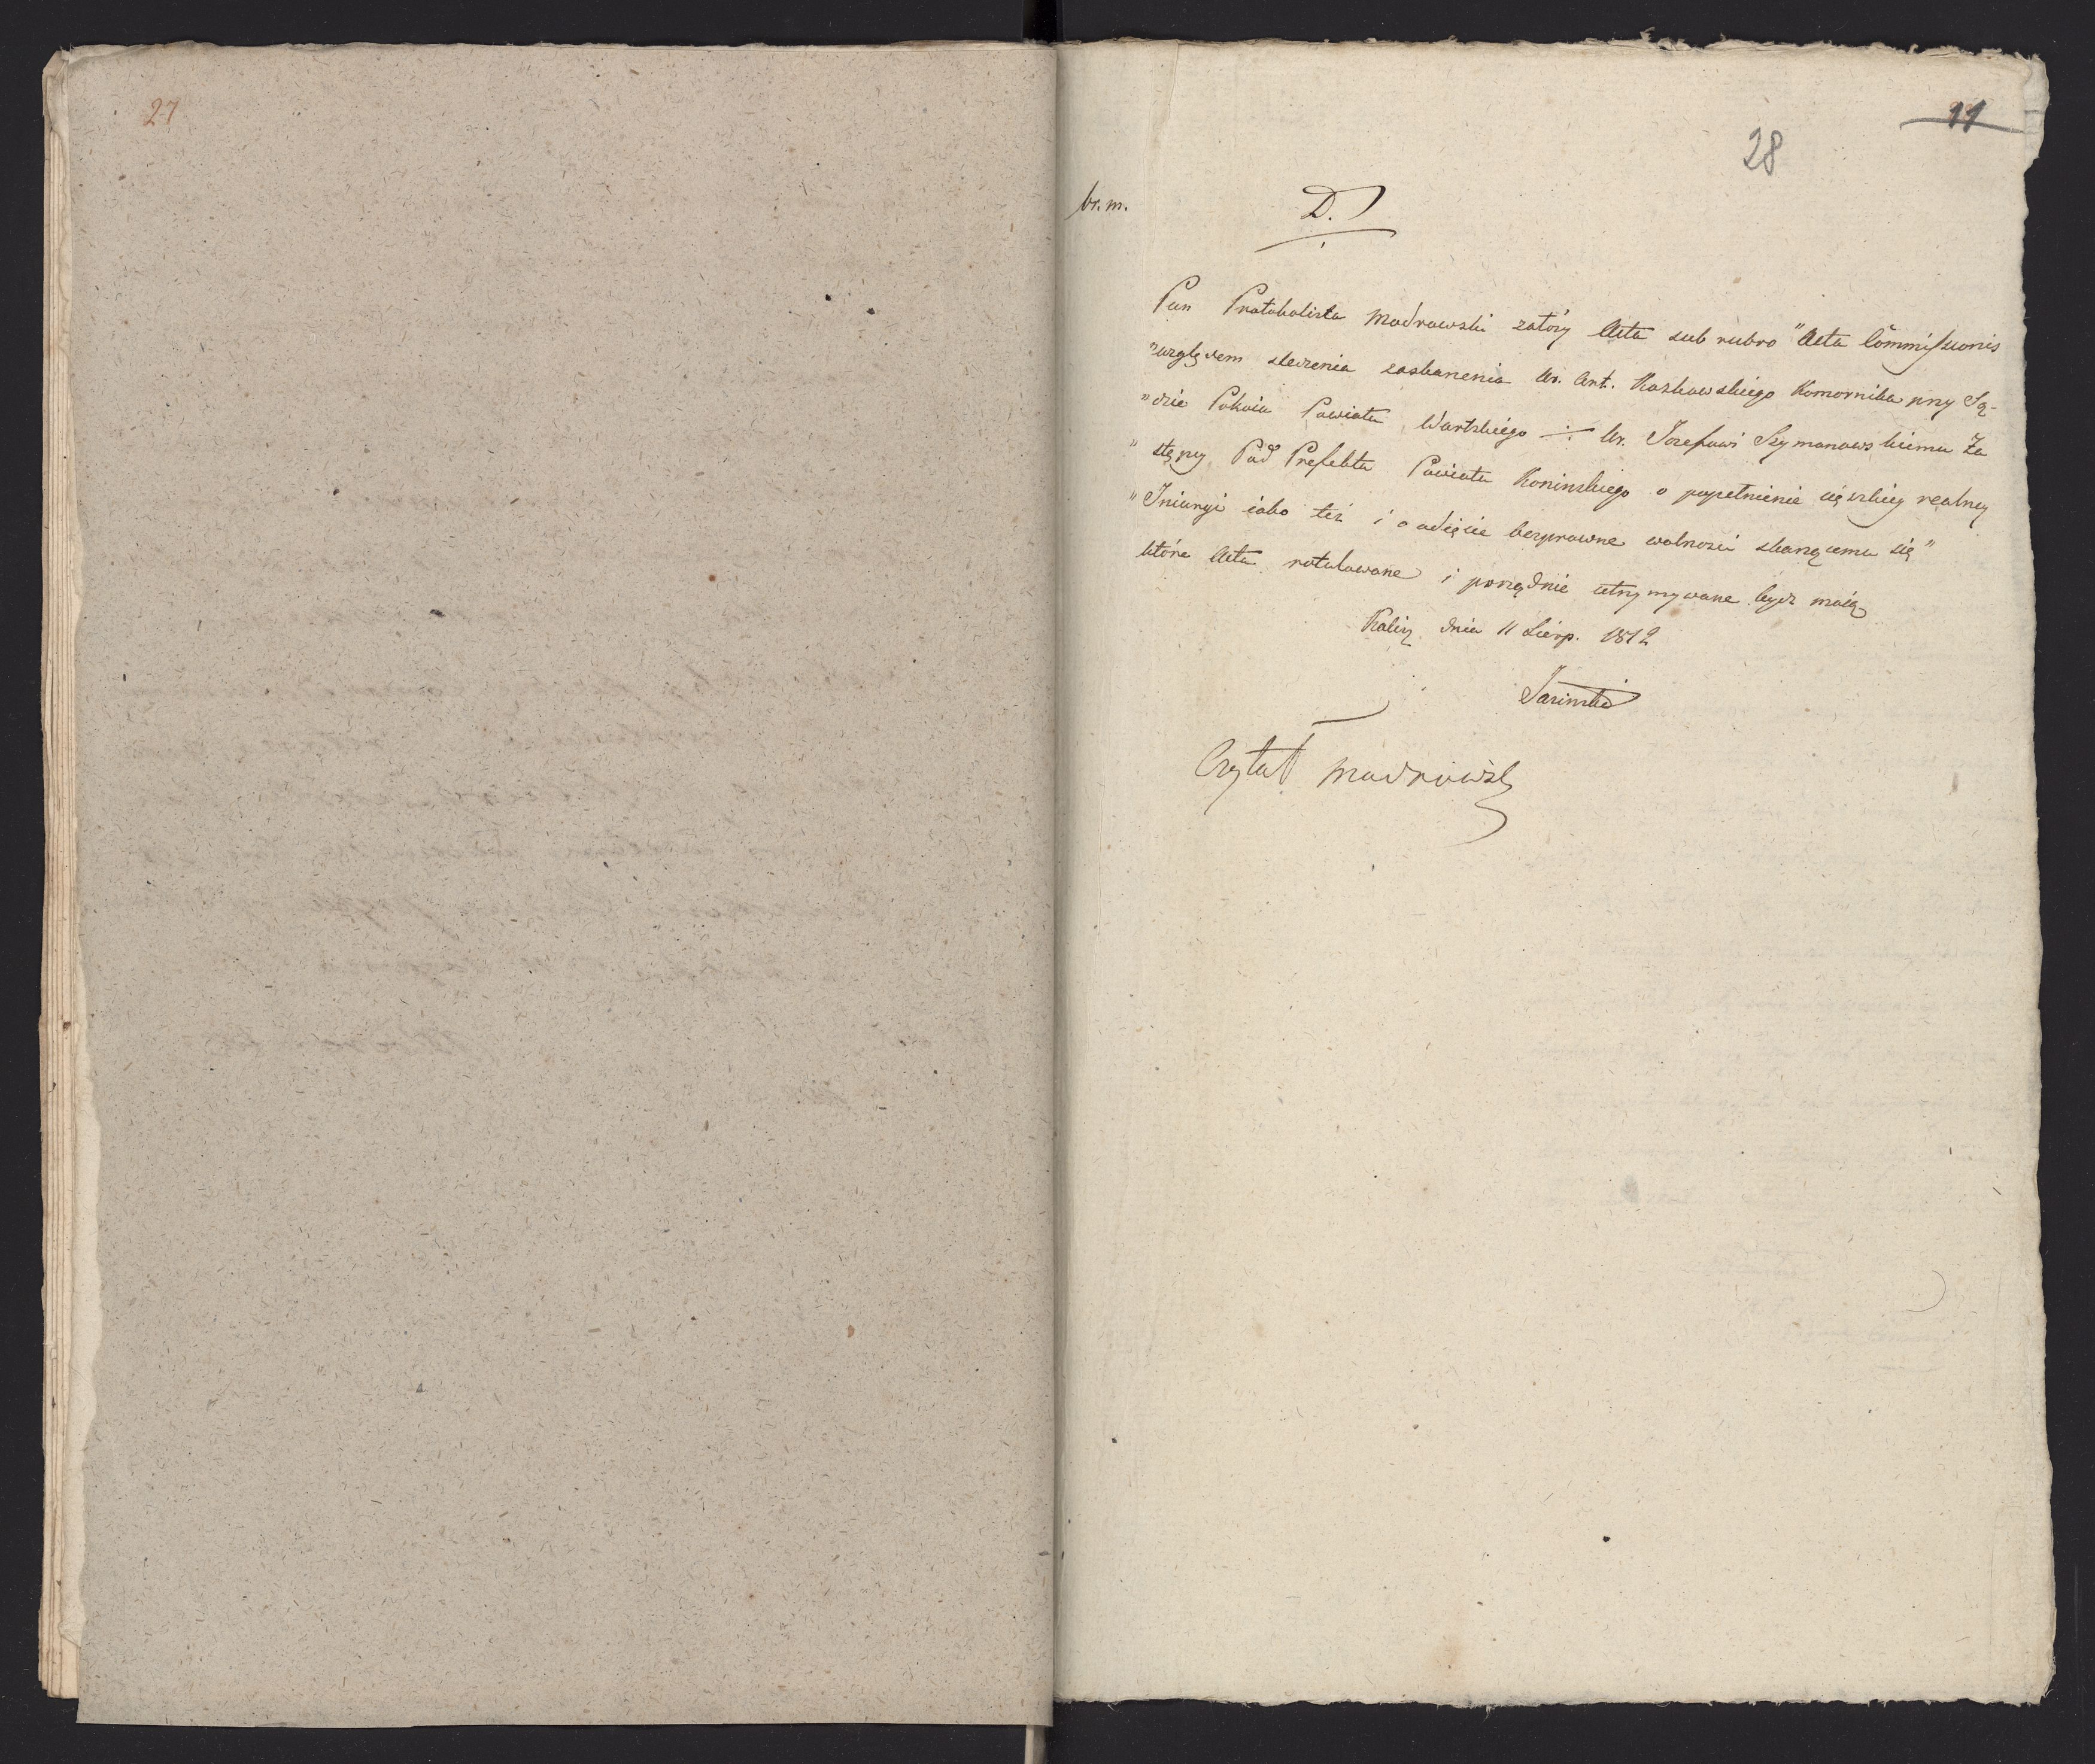 27
11
28
br. m.
D.
Pan Protokolista Modrowski założy Acta sub rubro "Acta Com̃missionis
"względem sledzenia zaskarzenia Ur. Ant. Koszkowskiego Komornika przy Są-
"dzie Pokoiu Powiatu Wartskiego ÷ Ur. Jozefowi Szymanowskiemu Za
"stępcy Pod Prefekta Powiatu Koninskiego o popełnienie cięszkiey realney
"Iniuryi iako też i o odięcie bezprawne wolności skarzącemu się"
które Acta rotulowane i porządnie utrzymywane bydz maią
Kalisz dnia 11 Sierp. 1812
Jasinski
Czytał Modrowski